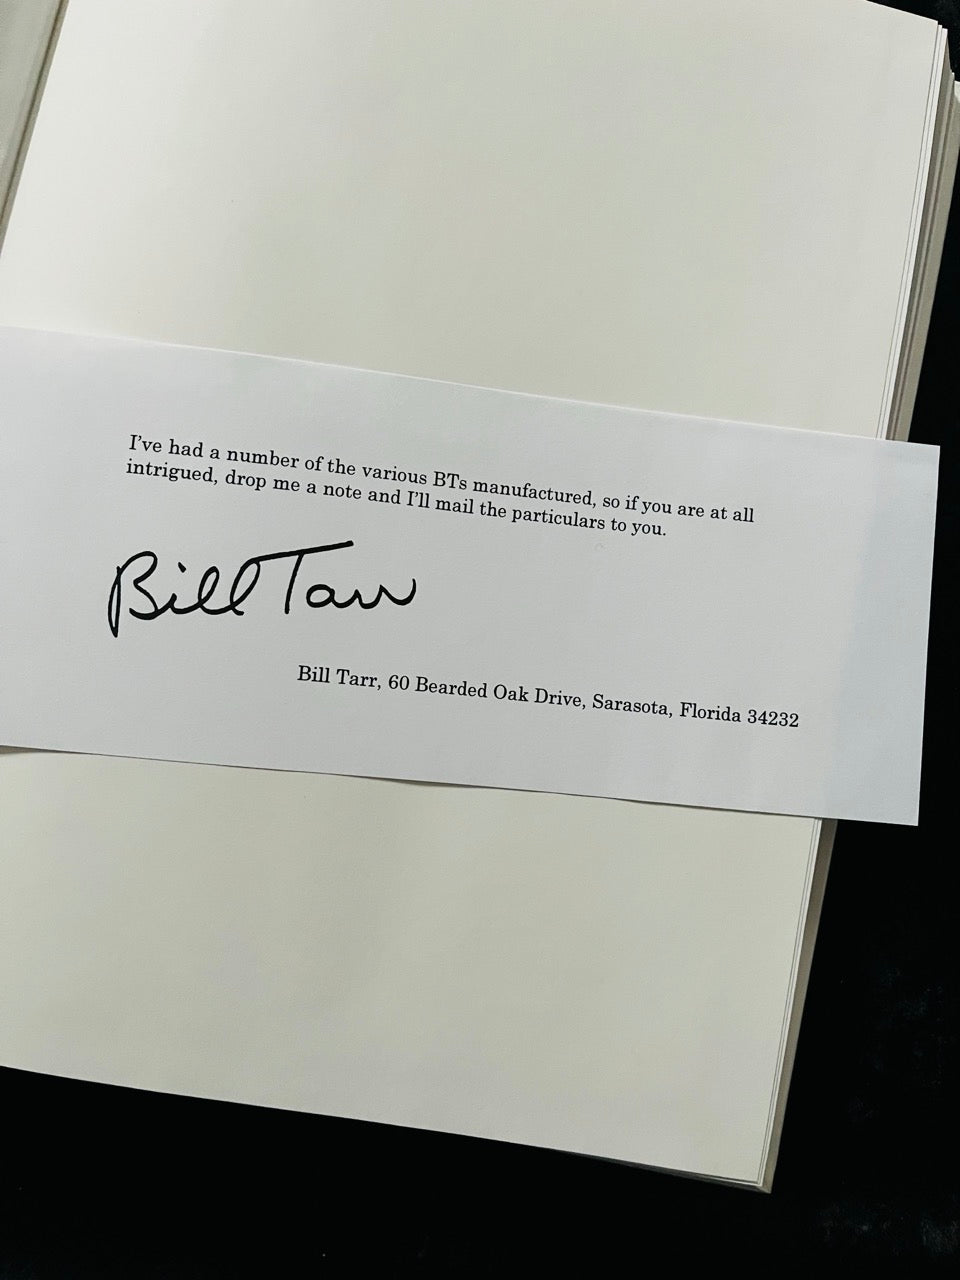 I've had a number of the various BTs manufactured, so if you are at all
intrigued, drop me a note and I'll mail the particulars to you.
Bill Tarr
Bill Tarr, 60 Bearded Oak Drive, Sarasota, Florida 34232